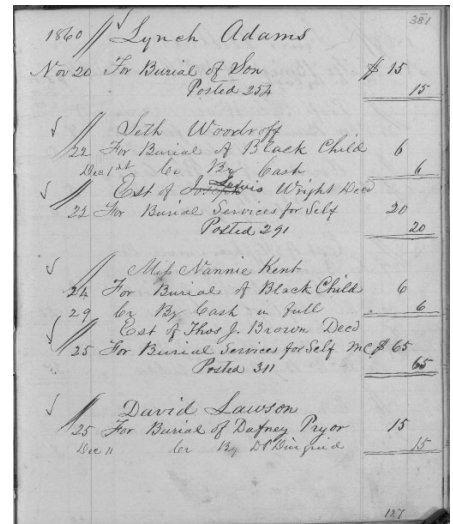 381
1860 Lynch Adams
Nov 20 For Burial of Son $ 15
Posted 254 15
Seth Woodroff
22 For Burial of Black Child 6
Dec 1st Cr By Cash 6
Est of Lewis Wright Decd
22 For Burial Services for Self 20
Posted 291 20
Miss Nannie Kent
24 For Burial of Black Child 6
29 Cr By Cash in full 6
Est of Thos J. Brown Decd
25 For Burial Services for Self $ 65
Posted 311 65
David Lawson
25 For Burial of Dafney Pryor 15
Dec " Cr By 15
127